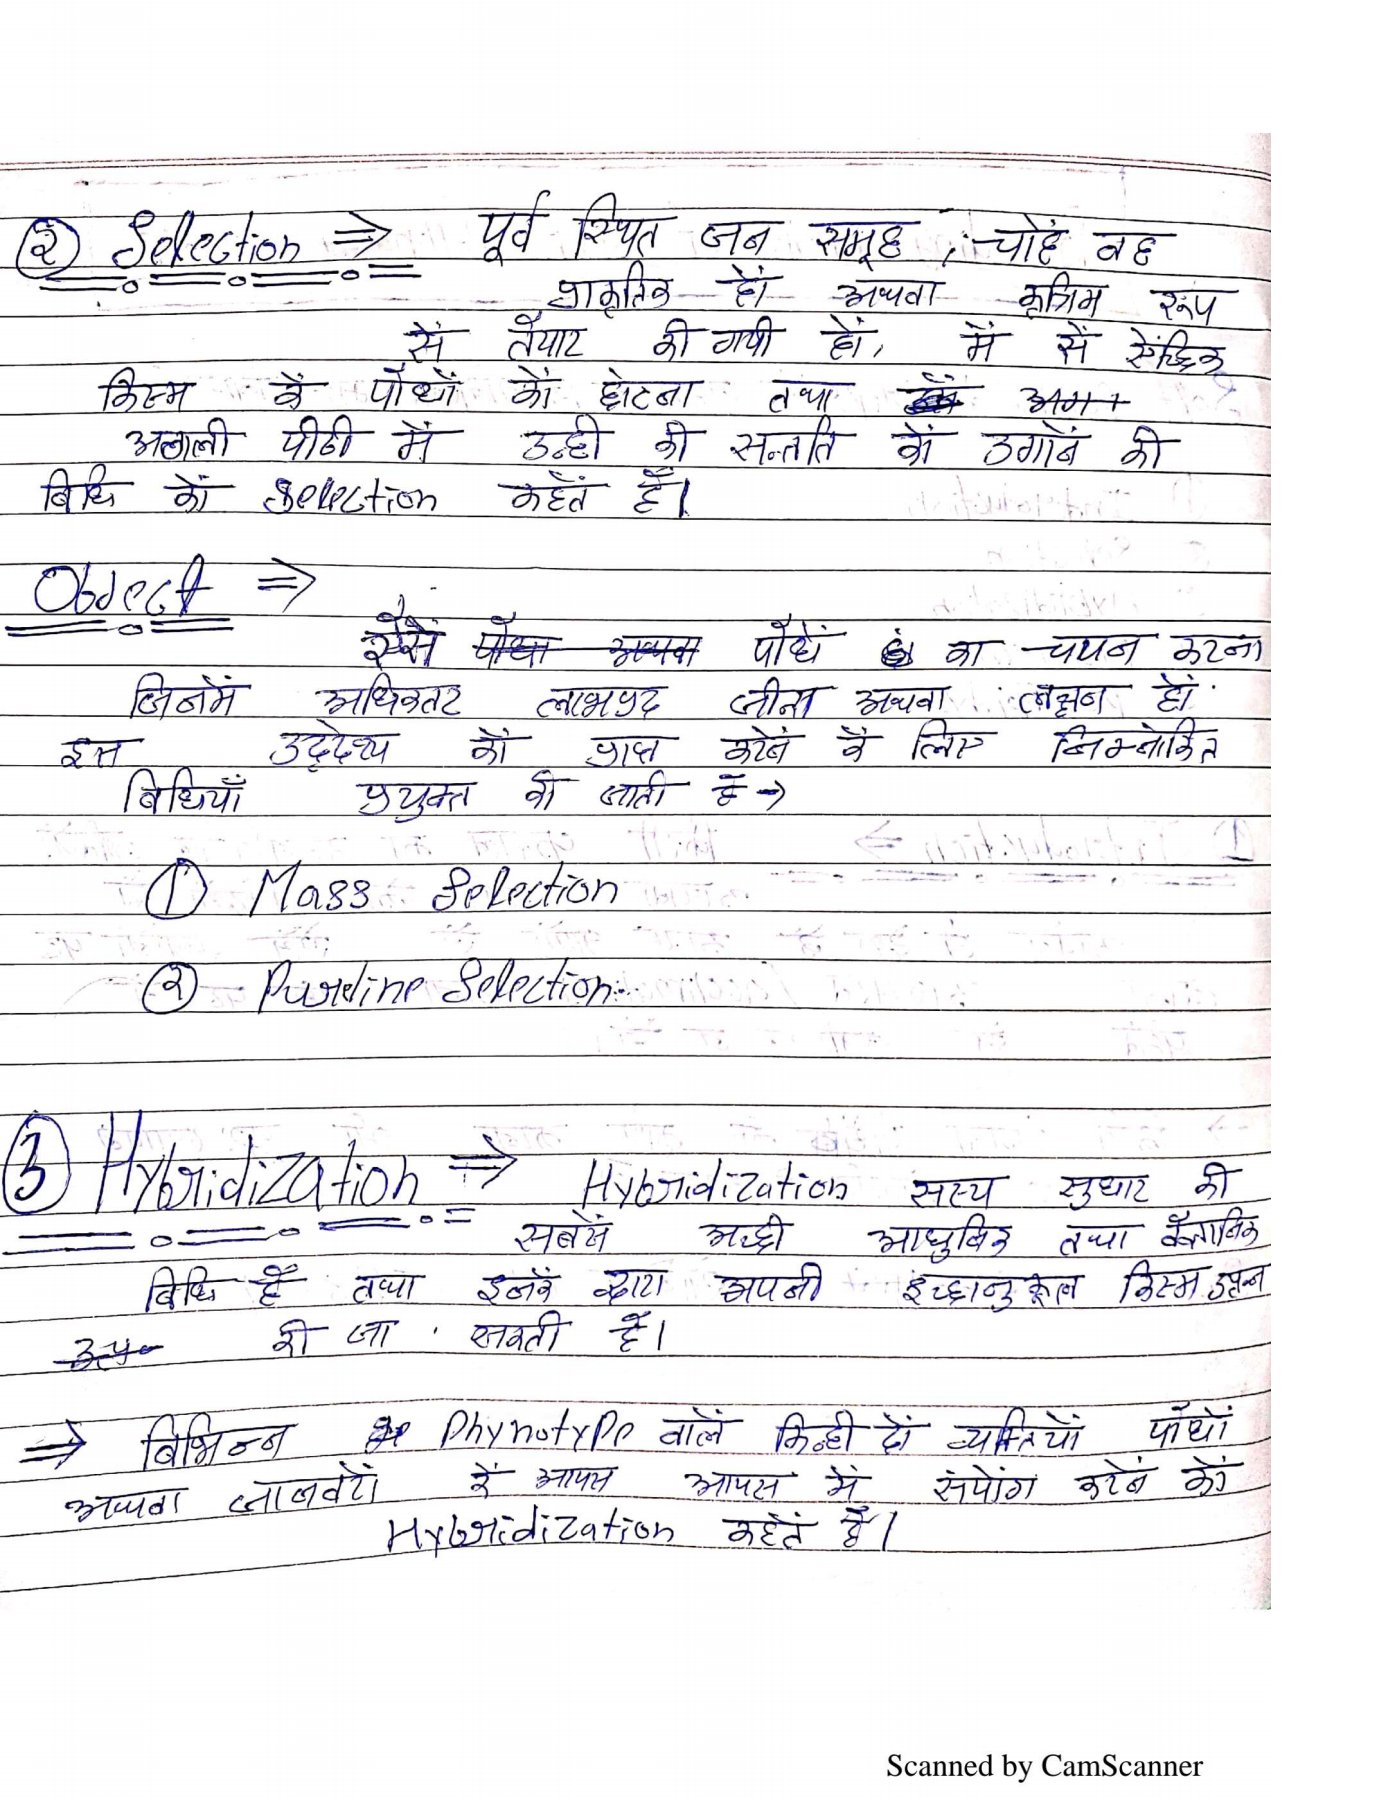 ② Selection ⇒ पूर्व स्थित जन समूह, चाहें वह
प्राकृतिक हों अथवा कृत्रिम रूप
सें तैयार की गयी हों, में सें ऐच्छिक
किस्म कें पौधों कों छाटना तथा
अगली पीढी में उन्ही की सन्तति कों उगानें की
बिधि कों Selection कहतें हैं।
Object ⇒
पौधें का चयन करना
जिनमें अधिकतर लाभप्रद जीन्स अथवा लक्षन हों.
इस उद्देश्य कों प्राप्त करनें कें लिए निम्नांकित
बिधियाँ प्रयुक्त की जाती हैं →
① Mass Selection
② Pureline Selection
③ Hybridization ⇒ Hybridization सस्य सुधार की
सबसें अच्छी आधुनिक तथा वैज्ञानिक
बिधि हैं तथा इनकें द्वारा अपनी इच्छानुकूल किस्म उत्पन्न
की जा सकती हैं।
⇒ बिभिन्न Phynotype वालें किन्ही दों व्यक्तियों पौधों
अथवा जानवरों कें आपस आपस में संयोंग करनें कों
Hybridization कहतें हैं।
Scanned by CamScanner